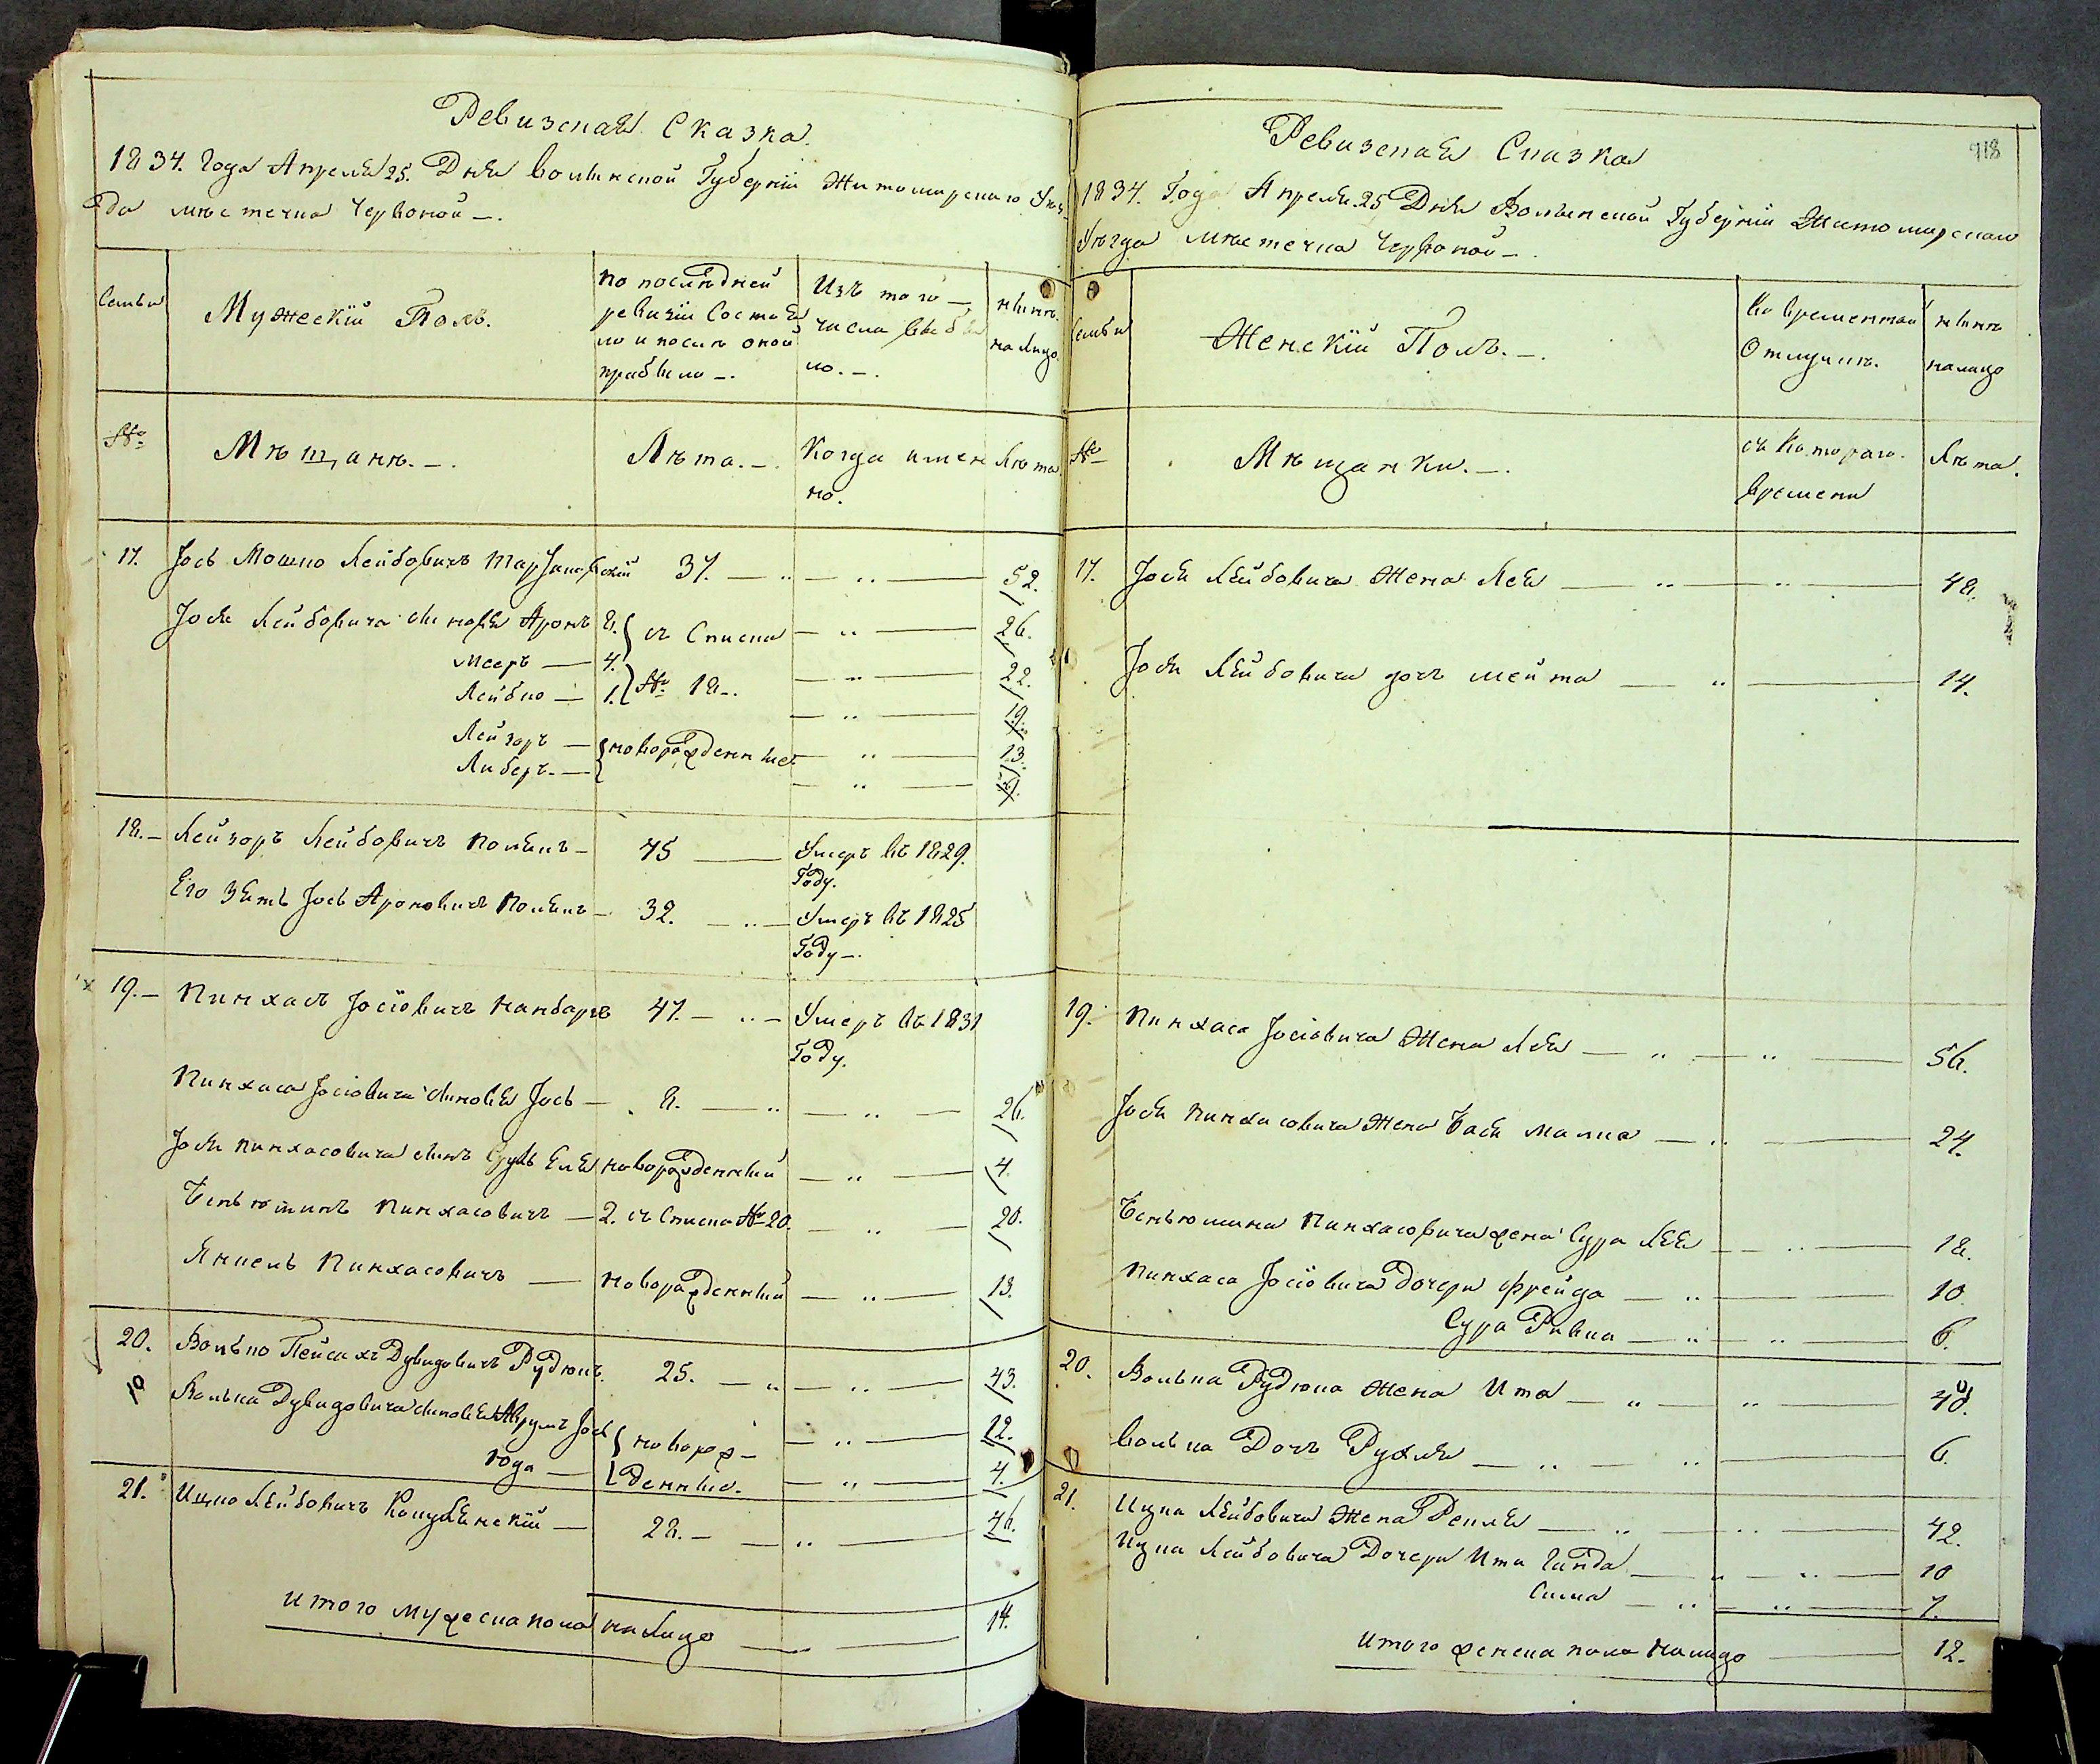 Ревизская Сказка.
1834. Года Апреля 25. Дня Волынской Губерніи Житомирскаго Уѣз-
да мѣстечка Червоной -.
Семьи
Мужескій Полъ.
По последней
ревизіи Состоя
ло и послѣ оной
прибыло -.
Изъ того -
числа выбы
ло. -.
нынѣ
на лицо
№
Мѣщанъ. -.
Лѣта. -.
Когда имен
но.
Лѣта
17. Іось Мошко Лейбовичъ 37. 52.
Іося Лейбовича сыновья Аронъ 8. съ Списка 26.
Мееръ — 4. 22.
Лейбко — 1. № 18 -. 19.
Лейзоръ — новорожденные 13.
Либеръ. —
18. - Лейзоръ Лейбовичъ Полякъ - 45 — Умеръ въ 1829.
Году.
Его Зять Іось Ароновичъ Полякъ - 32. Умеръ въ 1825
Году -.
19. - Пинхасъ Іосіовичъ 47. Умеръ въ 1831
Году.
Пинхаса Іосіовича сыновья Іось — 8. 26.
Іося Пинхасовича сынъ Сруль Еля новорожденный 4.
Беньюминъ Пинхасовичъ — 2. съ Списка № 20. 20.
Янкель Пинхасовичъ — новорожденный 13.
20. Волько Пейсахъ Дувидовичъ Рудюкъ. 25. 43.
Волька Дувидовича сыновья Аврумъ Іось { новорож- 12.
Юда — { денные. 4.
21. Ицко Лейбовичъ 28. - 46.
Итого мужеска пола на лицо 14.
918
Ревизская Сказка
1834. Года Апреля. 25 Дня Волынской Губерніи Житомирскаго
Уѣзда мѣстечка Червоной -.
Семьи
Женскій Полъ. -.
Во временной
Отлучкѣ.
нынѣ
налицо
№
Мѣщанки. -.
съ Котораго.
времени
Лѣта.
17. Іося Лейбовича Жена Лея 48.
Іося Лейбовича дочь Мейта 14.
19. Пинхаса Іосіовича Жена Лея 56.
Іося Пинхасовича Жена Бася Малка 24.
Беньюмина Пинхасовича жена Сура Лея 18.
Пинхаса Іосіовича Дочери Фрейда 10
Сура Ривка 6.
20. Волька Рудюка Жена Ита 40.
Волька Дочь Рухля 6.
21. Ицка Лейбовича Жена Рейля 42.
Ицка Лейбовича Дочери Ита Гинда 10
Сима 7.
Итого женска пола налицо 12.